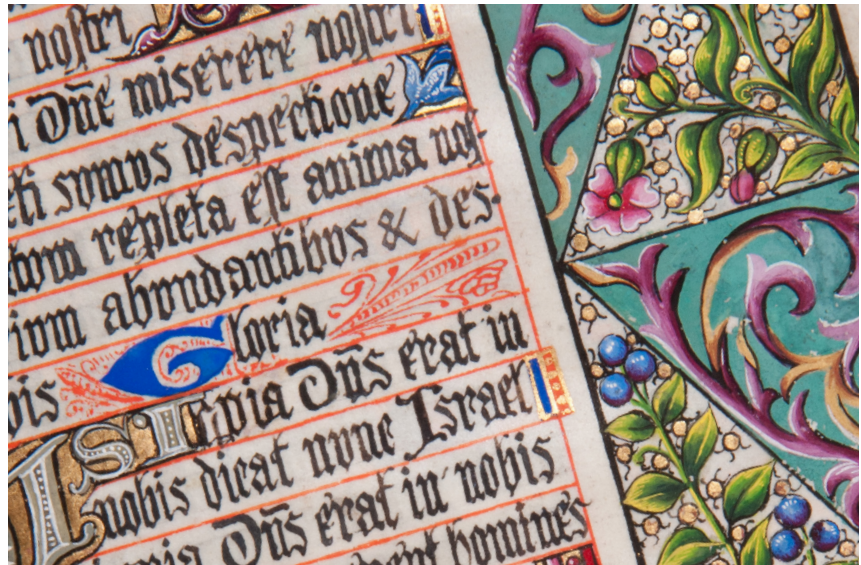 nostri
i Dñe miserere nostri
eti somvs despectione
tvm repleta est anima nos-
ivm abvndantibvs & des-
vis Gloria
Isi qvia Dñs erat in
nobis dicat nvnc Israel
Dñs erat in nobis
homines